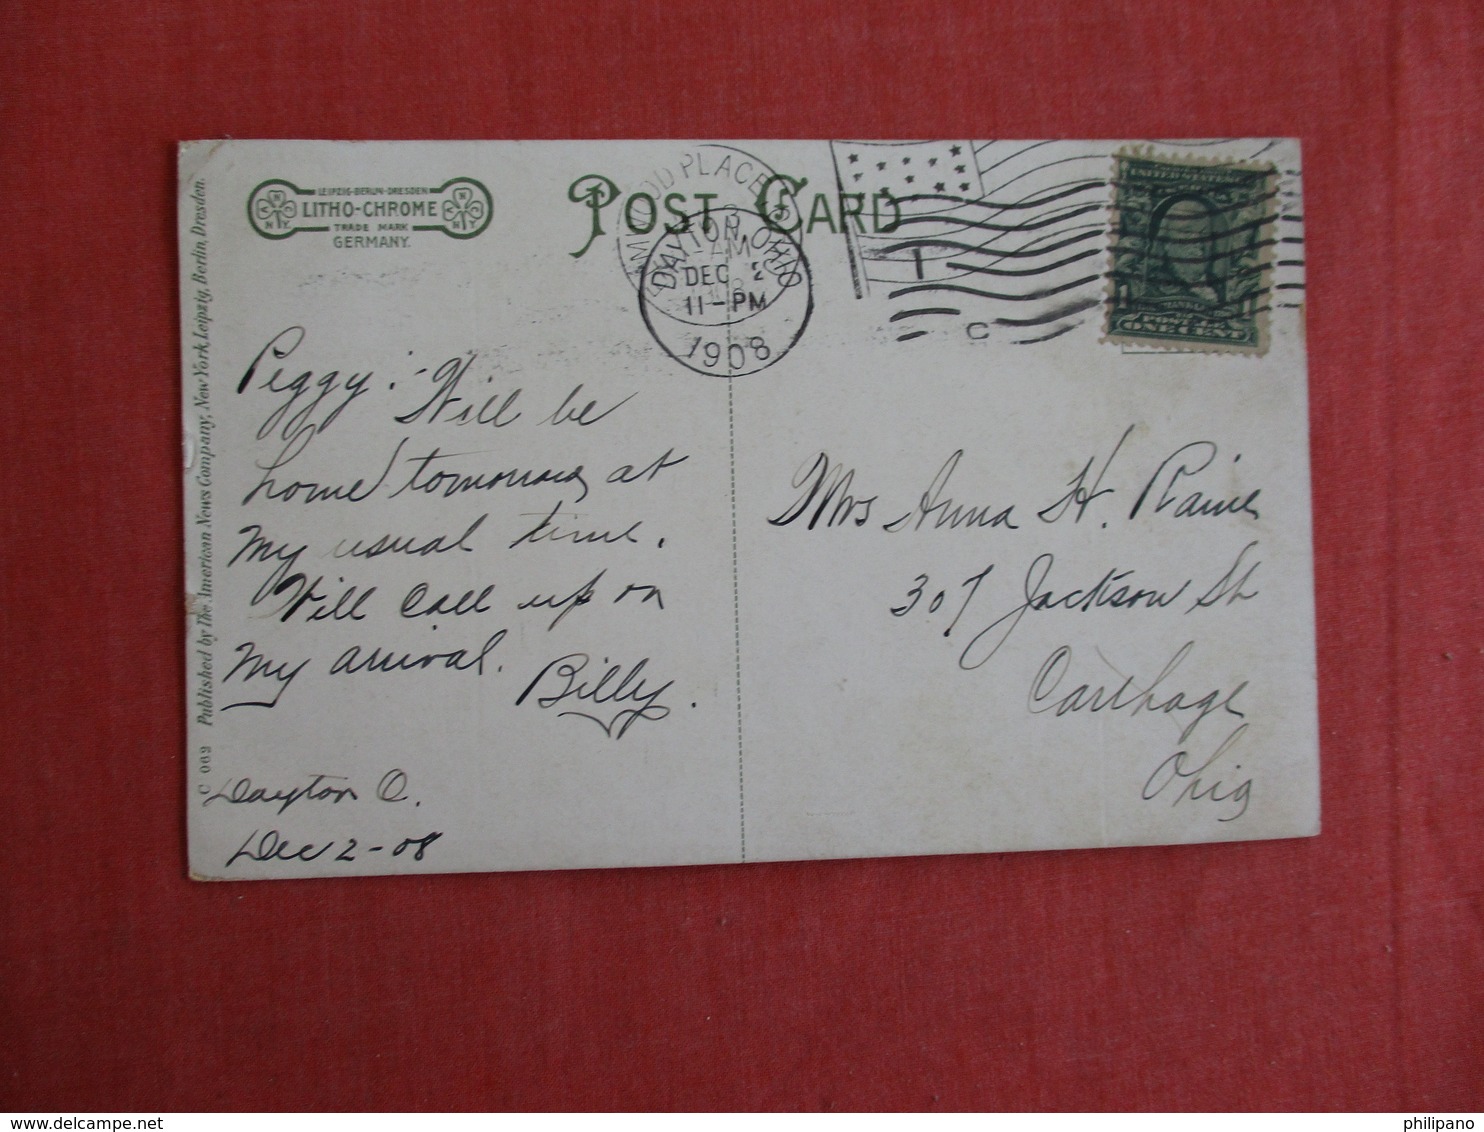 LEIPZIG-BERLIN-DRESDEN
LITHO-CHROME
TRADE MARK
GERMANY.
POST CARD
ELMWOOD PLACE
AM
DAYTON, OHIO
DEC 2
11-PM
1908
1
C
UNITED STATES
POSTAGE
ONE CENT
Peggy:- Will be
home tomorrow at
my usual time.
Will call up on
my arrival.
Billy.
Dayton O.
Dec 2-08
Mrs Anna H. Raine
307 Jackson St
Carthage
Ohio
C 062 Published by The American News Company, New York, Leipzig, Berlin, Dresden.
delcampe.net
philipano